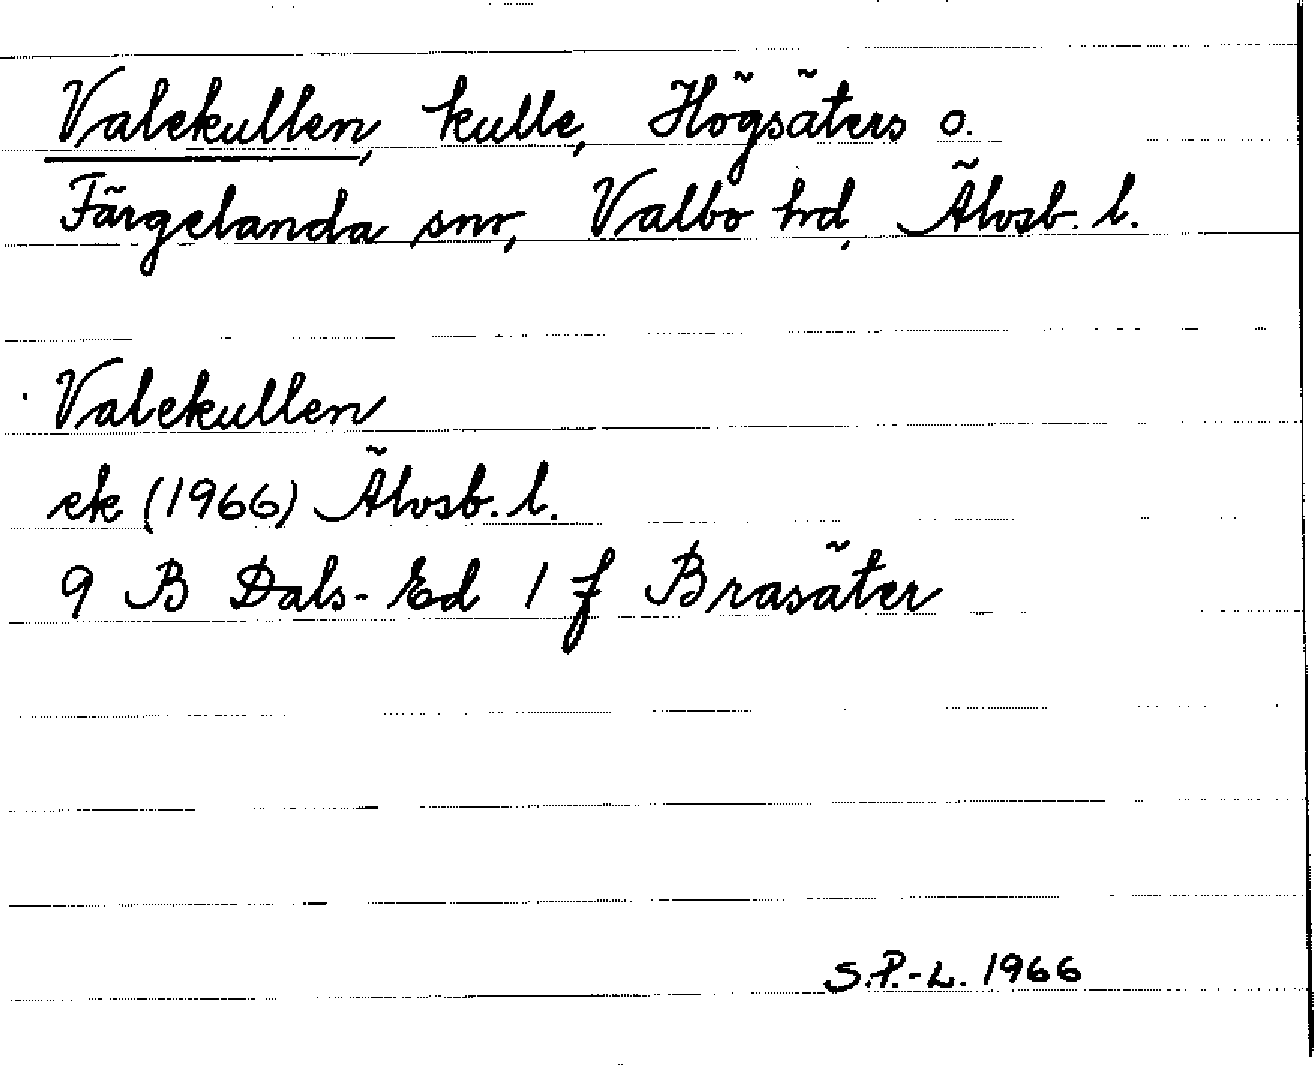 Valekullen, kulle, Högsäters o.
Färgelanda snr, Valbo hd, Älvsb. l.
Valekullen
ek (1966) Älvsb. l.
9 B Dals-Ed 1 f Brasäter
S.P.-L. 1966